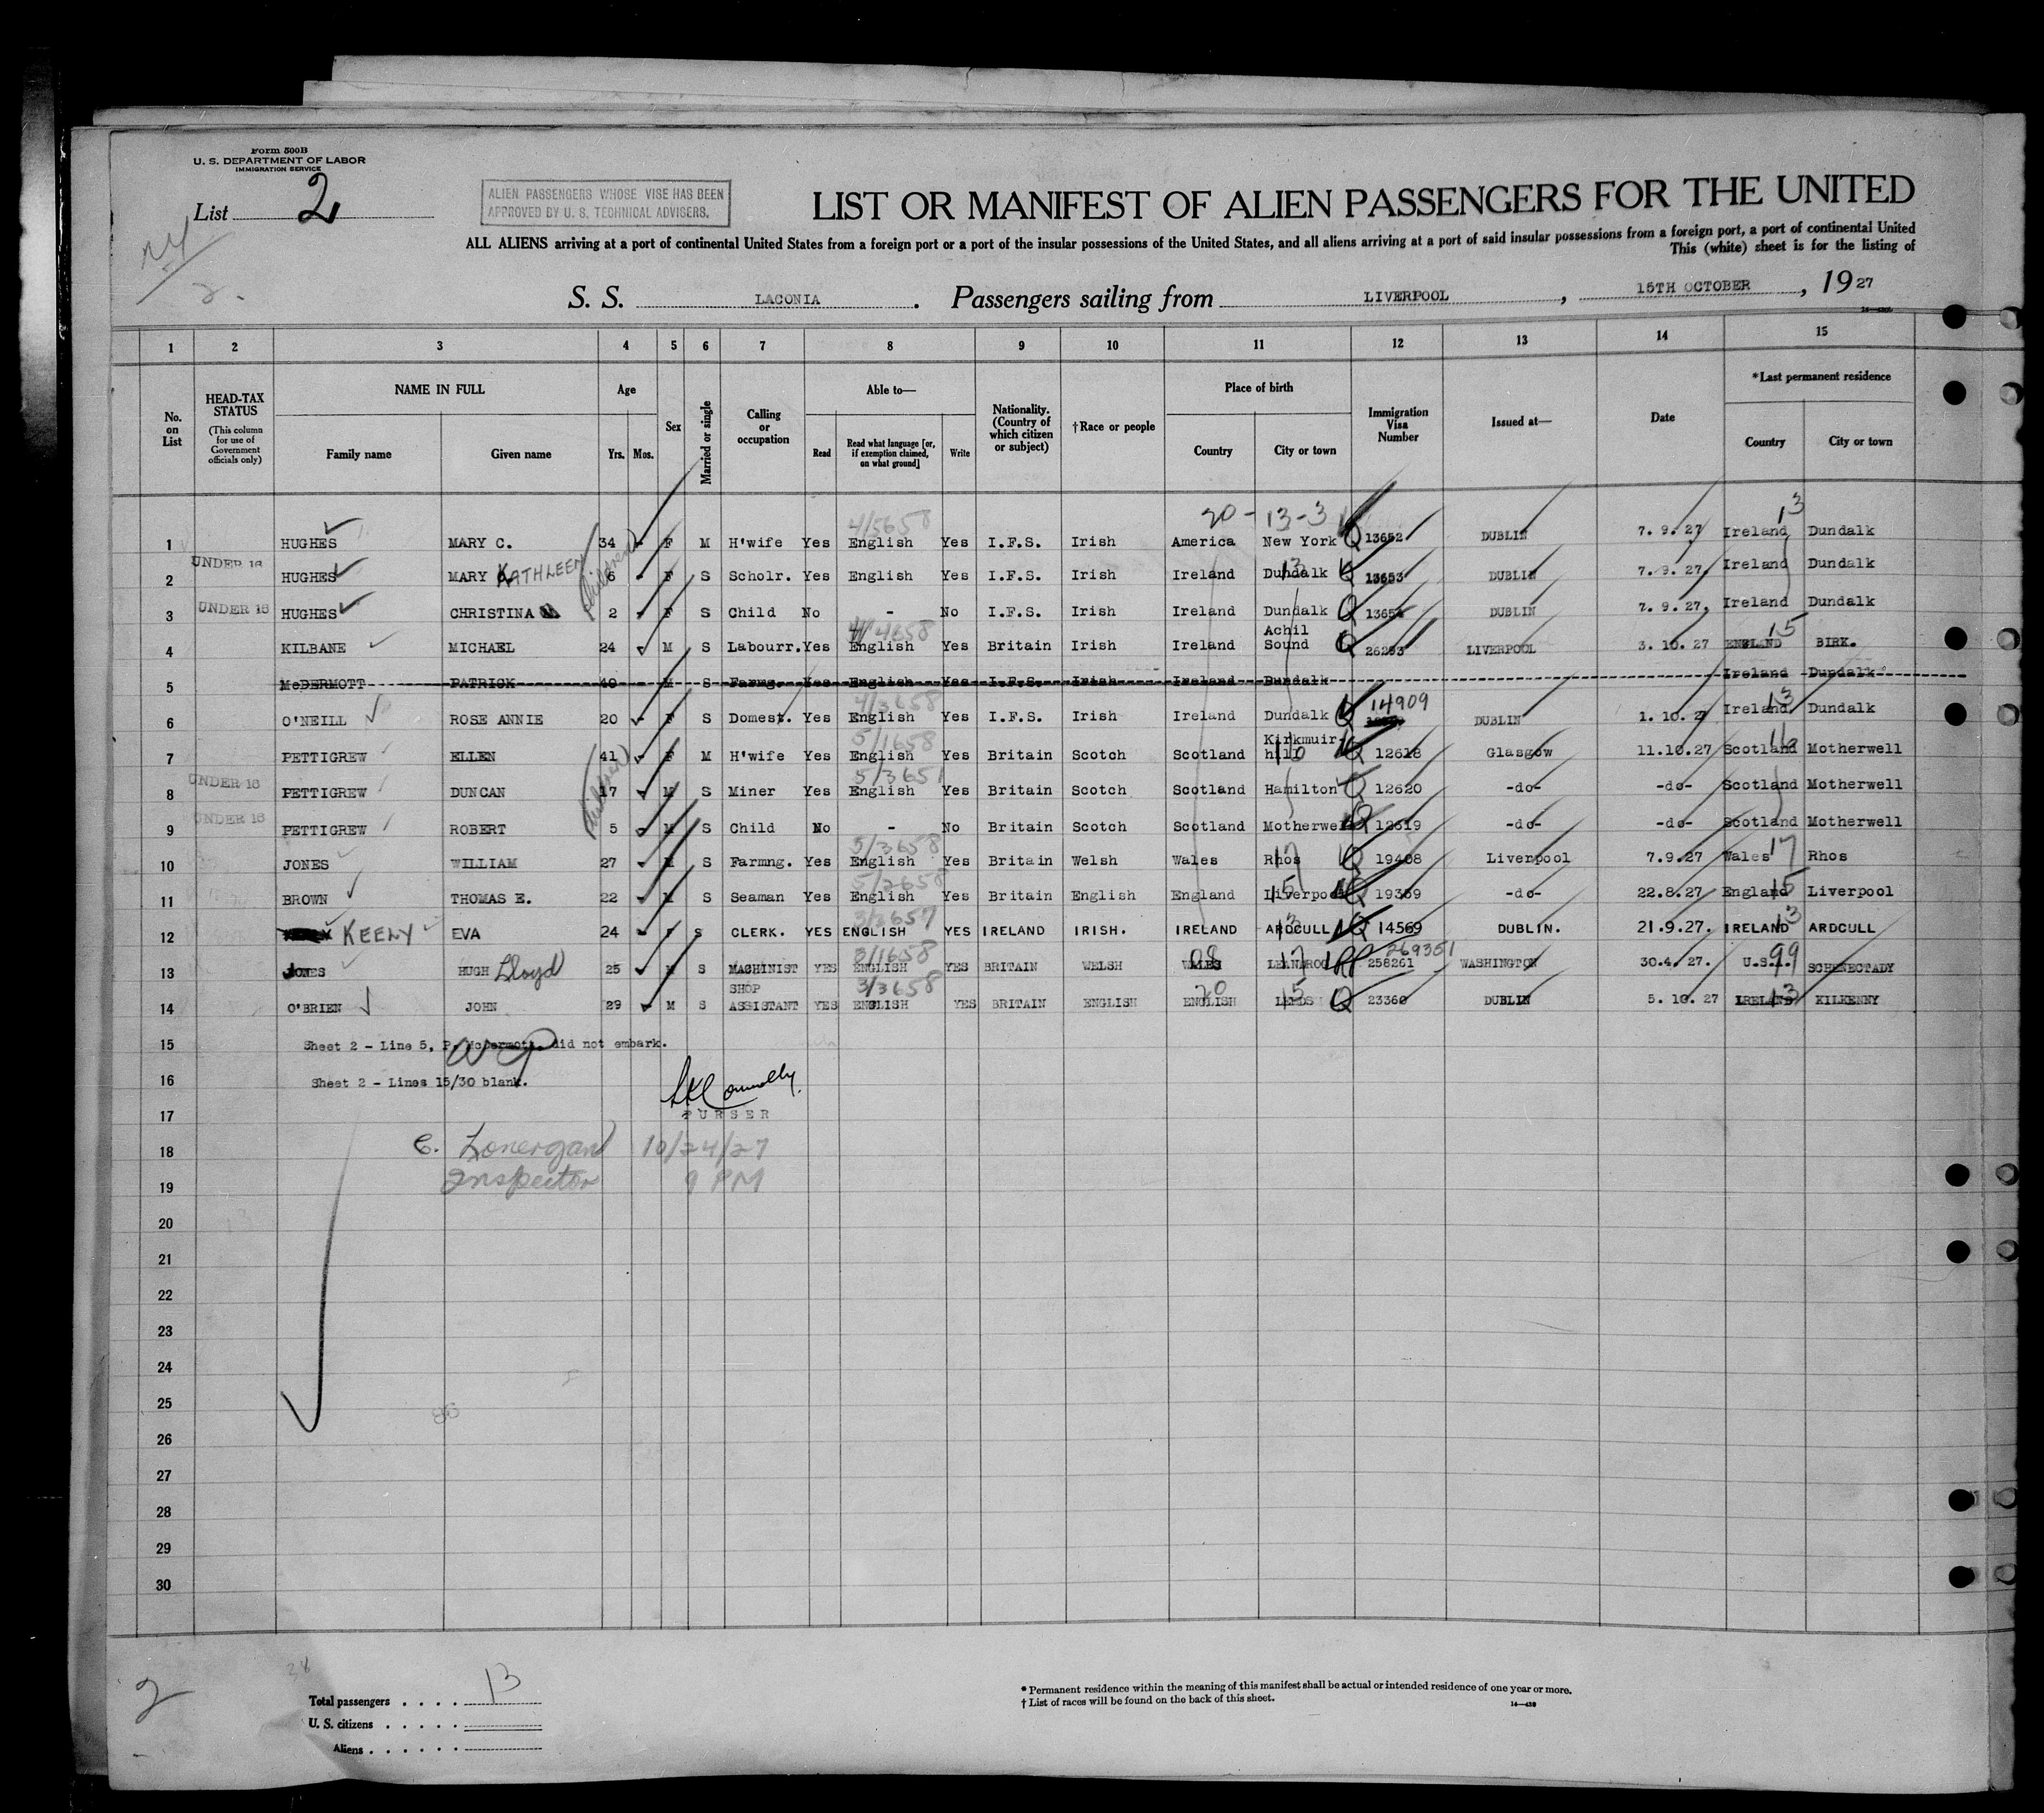 Form 500B
U. S. DEPARTMENT OF LABOR
IMMIGRATION SERVICE
List 2
ALIEN PASSENGERS WHOSE VISE HAS BEEN
APPROVED BY U. S. TECHNICAL ADVISERS.
LIST OR MANIFEST OF ALIEN PASSENGERS FOR THE UNITED
ALL ALIENS arriving at a port of continental United States from a foreign port or a port of the insular possessions of the United States, and all aliens arriving at a port of said insular possessions from a foreign port, a port of continental United
This (white) sheet is for the listing of
S. S. LACONIA. Passengers sailing from LIVERPOOL, 15TH OCTOBER, 1927
1 2 3 4 5 6 7 8 9 10 11 12 13 14 15
No. on List
HEAD-TAX STATUS (This column for use of Government officials only)
NAME IN FULL
Family name Given name
Age
Yrs. Mos.
Sex
Married or single
Calling or occupation
Able to—
Read Read what language [or, if exemption claimed, on what ground] Write
Nationality. (Country of which citizen or subject)
†Race or people
Place of birth
Country City or town
Immigration Visa Number
Issued at—
Date
*Last permanent residence
Country City or town
20 - 13-3 13
4/5658
1 HUGHES MARY C. 34 F M H'wife Yes English Yes I.F.S. Irish America New York Q 13652 DUBLIN 7. 9. 27 Ireland Dundalk
2 UNDER 16 HUGHES MARY KATHLEEN 6 F S Scholr. Yes English Yes I.F.S. Irish Ireland Dundalk 13 Q 13653 DUBLIN 7. 9. 27, Ireland Dundalk
3 UNDER 16 HUGHES CHRISTINA 2 F S Child No - No I.F.S. Irish Ireland Dundalk Q 13654 DUBLIN 7. 9. 27, Ireland Dundalk
4/4658
4 KILBANE MICHAEL 24 M S Labourr. Yes English Yes Britain Irish Ireland Achil Sound Q 26293 LIVERPOOL 3. 10. 27 ENGLAND 15 BIRK.
5 McDERMOTT PATRICK 40 M S Farmg. Yes English Yes I.F.S. Irish Ireland Dundalk Ireland Dundalk
4/3658
6 O'NEILL ROSE ANNIE 20 F S Domest. Yes English Yes I.F.S. Irish Ireland Dundalk Q 14909 DUBLIN 1. 10. 27 Ireland 13 Dundalk
5/1658
7 PETTIGREW ELLEN 41 F M H'wife Yes English Yes Britain Scotch Scotland Kirkmuir-hill 16 Q 12618 Glasgow 11.10.27 Scotland 16 Motherwell
5/3651
8 UNDER 16 PETTIGREW DUNCAN 17 M S Miner Yes English Yes Britain Scotch Scotland Hamilton Q 12620 -do- -do- Scotland Motherwell
9 UNDER 16 PETTIGREW ROBERT 5 M S Child No - No Britain Scotch Scotland Motherwell Q 12619 -do- -do- Scotland Motherwell
5/3658
10 JONES WILLIAM 27 M S Farmng. Yes English Yes Britain Welsh Wales Rhos 17 Q 19408 Liverpool 7.9.27 Wales 17 Rhos
5/2658
11 BROWN THOMAS E. 22 M S Seaman Yes English Yes Britain English England Liverpool 15 Q 19359 -do- 22.8.27 England 15 Liverpool
3/3657
12 KEENY EVA 24 F S CLERK. YES ENGLISH YES IRELAND IRISH. IRELAND ARDCULL 13 Q 14569 DUBLIN. 21.9.27. IRELAND 13 ARDCULL
3/1658 269351
13 JONES HUGH Lloyd 25 M S MACHINIST YES ENGLISH YES BRITAIN WELSH WALES 17 258261 WASHINGTON 30.4. 27. U.S.A. 99 SCHENECTADY
3/3658
14 O'BRIEN JOHN 29 M S SHOP ASSISTANT YES ENGLISH YES BRITAIN ENGLISH ENGLISH 20 LEEDS 15 Q 23360 DUBLIN 5. 10. 27 IRELAND 13 KILKENNY
15 Sheet 2 - Line 5, P. McDermott did not embark.
16 Sheet 2 - Lines 15/30 blank.
17 PURSER
18 C. Lonergan 10/24/27
19 Inspector 9 PM
20
21
22
23
24
25
26
27
28
29
30
2
Total passengers . . . . 13
U. S. citizens . . . . .
Aliens . . . . . .
* Permanent residence within the meaning of this manifest shall be actual or intended residence of one year or more.
† List of races will be found on the back of this sheet.